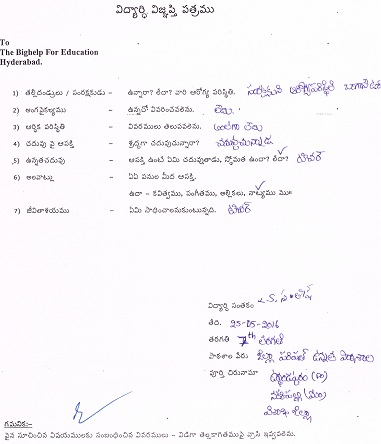 విద్యార్థి విజ్ఞప్తి పత్రము
To
The Bighelp For Education
Hyderabad.
1) తల్లిదండ్రులు / సంరక్షకుడు - ఉన్నారా? లేదా? వారి ఆరోగ్య పరిస్థితి.
2) అంగవైకల్యము - ఉన్నచో వివరించవలెను. లేదు
3) ఆర్థిక పరిస్థితి - వివరములు తెలుపవలెను. లేదు
4) చదువు పై ఆసక్తి - శ్రద్ధగా చదువుచున్నారా? చదువుచున్నాడు
5) ఉన్నతచదువు - ఆసక్తి ఉంటే ఏమి చదువుతాడు, స్తోమత ఉందా? లేదా? టీచర్
6) అలవాట్లు - ఏ ఏ పనుల మీద ఆసక్తి.
ఉదా – కవిత్వము, సంగీతము, అల్లికలు, నాట్యము ము॥
7) జీవితాశయము - ఏమి సాధించాలనుకుంటున్నది. టీచర్
విద్యార్థి సంతకం
తేది. 25-05-2016
తరగతి 7th తరగతి
పాఠశాల పేరు జిల్లా పరిషత్ ఉన్నత పాఠశాల
పూర్తి చిరునామా
గమనిక:-
పైన సూచించిన విషయములకు సంబంధించిన వివరములు - విడిగా తెల్లకాగితముపై వ్రాసి ఇవ్వవలెను.